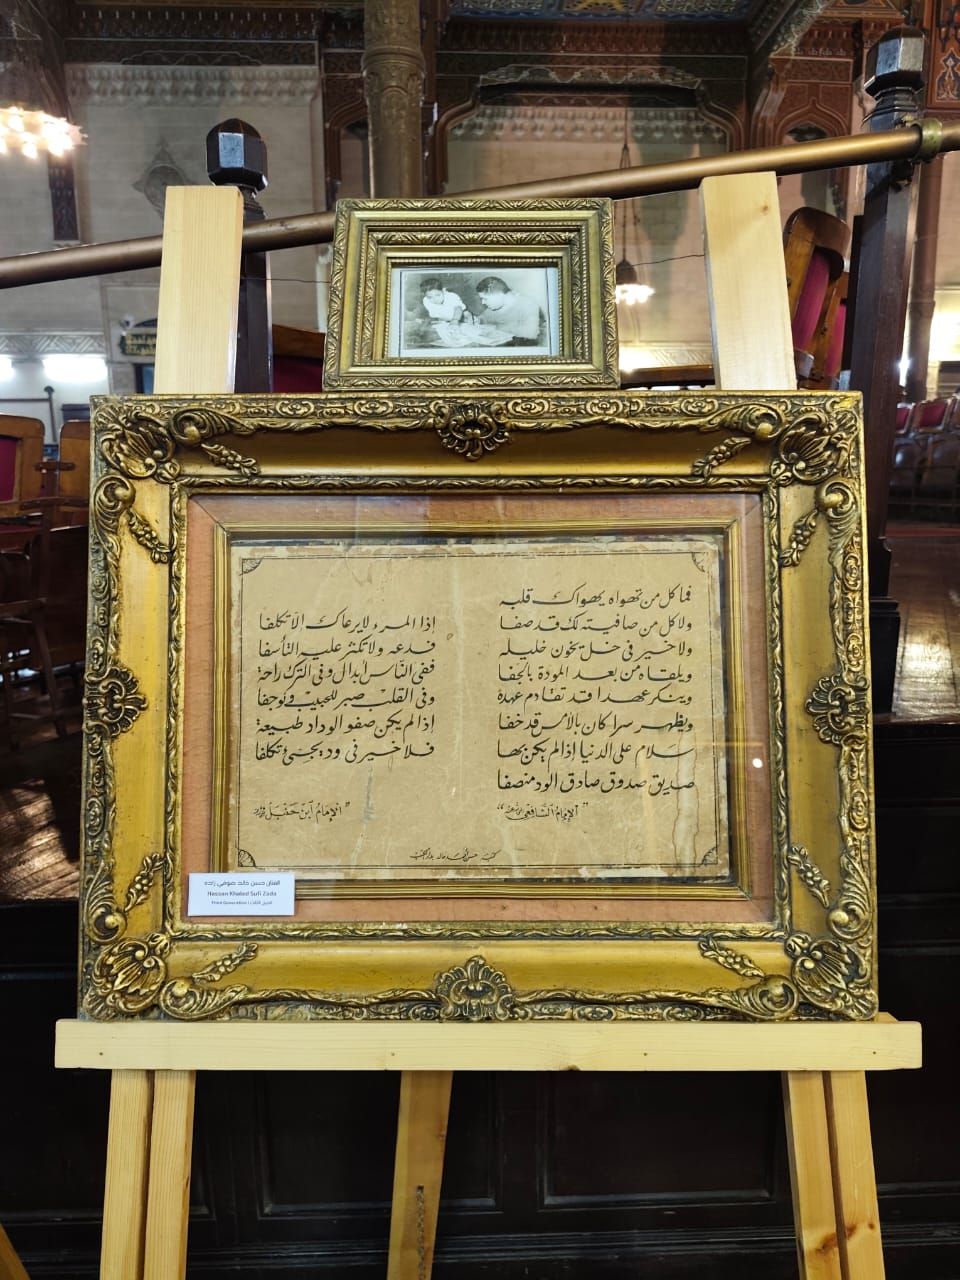 فما كل من تهواه يهواك قلبه
ولا كل من صافيته لك قد صفا
ولا خير فى خل يخون خليله
ويلقاه من بعد المودة بالجفا
وينكر عهدا قد تقادم عهده
ويظهر سرا كان بالأمس قد خفا
سلام على الدنيا إذا لم يكن بها
صديق صدوق صادق الود منصفا
"الإمام الشافعى"
إذا المرء لا يرعاك إلا تكلفا
فدعه ولا تكثر عليه التأسفا
ففى الناس أبدال وفى الترك راحة
وفى القلب صبر للحبيب ولو جفا
إذا لم يكن صفو الوداد طبيعة
فلا خير فى ود يجئ تكلفا
"الإمام ابن حنبل
كتبه حسن خالد بدار الكتب
الفنان حسن خالد صوفي زاده
Hassan Khaled Sufi Zada
Third Generation | الجيل الثالث